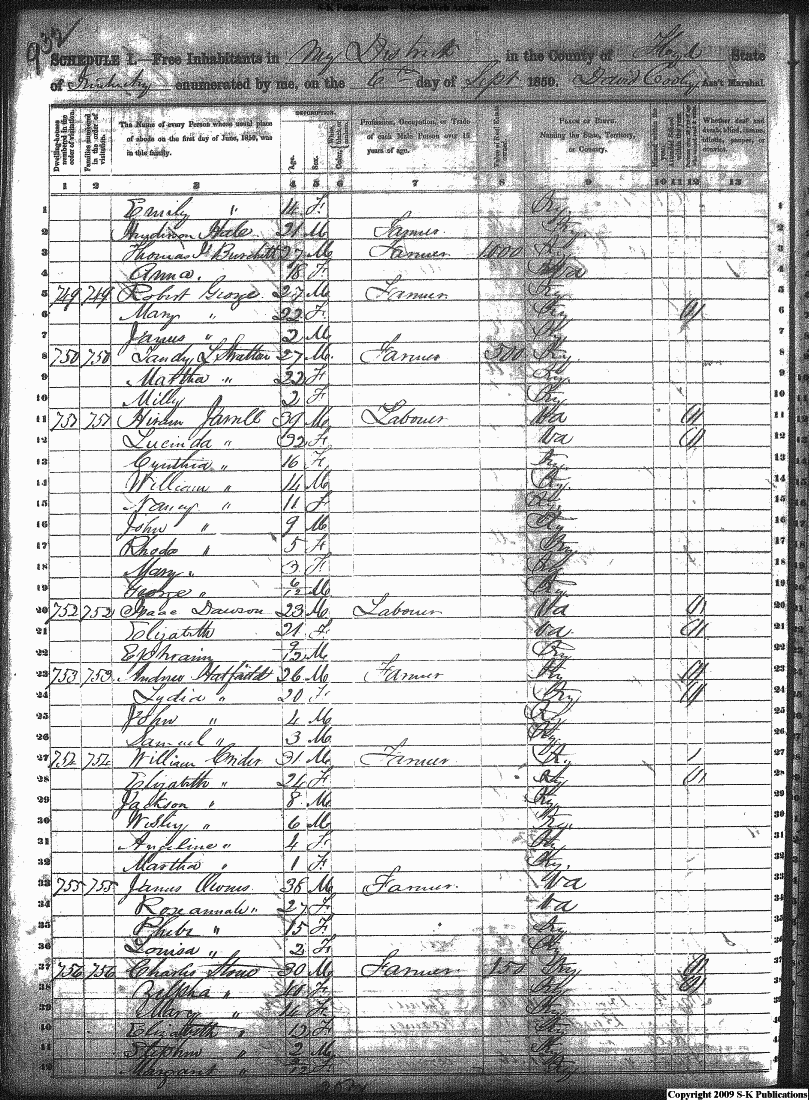 932
SCHEDULE I.—Free Inhabitants in My District in the County of Floyd State
of Kentucky enumerated by me, on the 6th day of Sept 1850. David Cooly Ass't Marshal
Dwelling-houses numbered in the order of visitation.
Families numbered in the order of visitation.
The Name of every Person whose usual place of abode on the first day of June, 1850, was in this family.
DESCRIPTION.
Age.
Sex.
Profession, Occupation, or Trade of each Male Person over 15 years of age.
Value of Real Estate owned.
PLACE OF BIRTH. Naming the State, Territory, or Country.
Whether deaf and dumb, blind, insane, idiotic, pauper, or convict.
1 2 3 4 5 6 7 8 9 10 11 12 13
1 Emily " 14 F Ky 1
2 Hale 21 M Farmer Ky 2
3 Thomas Burchitt 27 M Farmer 1000 Ky 3
4 Anna 18 F Va 4
5 749 749 Robert George 27 M Farmer Ky 5
6 Mary " 22 F Ky 6
7 James " 2 M Ky 7
8 750 750 Tandy L Stratton 27 M Farmer 500 Ky 8
9 Martha " 22 F Ky 9
10 Milly 2 F Ky 10
11 751 751 Hiram Jarrell 39 M Labourer Va 11
12 Lucinda " 32 F Va 12
13 Cynthia " 16 F Ky 13
14 William " 14 M Ky 14
15 Nancy " 11 F Ky 15
16 John " 9 M Ky 16
17 Rhoda " 5 F Ky 17
18 Mary " 3 F Ky 18
19 George " 6/12 M Ky 19
20 752 752 Isaac Dawson 23 M Labourer Va 20
21 Elizabeth 21 F Va 21
22 Ephraim 9/12 M Ky 22
23 753 753 Andrew Hatfield 26 M Farmer Ky 23
24 Lydia " 20 F Ky 24
25 John " 4 M Ky 25
26 Samuel " 3 M Ky 26
27 754 754 William Crider 31 M Farmer Ky 1 27
28 Elizabeth " 24 F Ky 28
29 Jackson " 8 M Ky 29
30 Wesley " 6 M Ky 30
31 Angeline " 4 F Ky 31
32 Martha " 1 F Ky 32
33 755 755 James Owens 38 M Farmer Va
34 Roseannah " 27 F Va
35 Phebe " 15 F Ky
36 Louisa " 2 F Ky
37 756 756 Charles Stone 30 M Farmer 150 Ky
38 Zilpha " F Ky
39 Mary " 14 F Ky
40 Elizabeth " 12 F Ky
41 Stephen " 2 M Ky
42 Margaret " Ky
Copyright 2009 S-K Publications